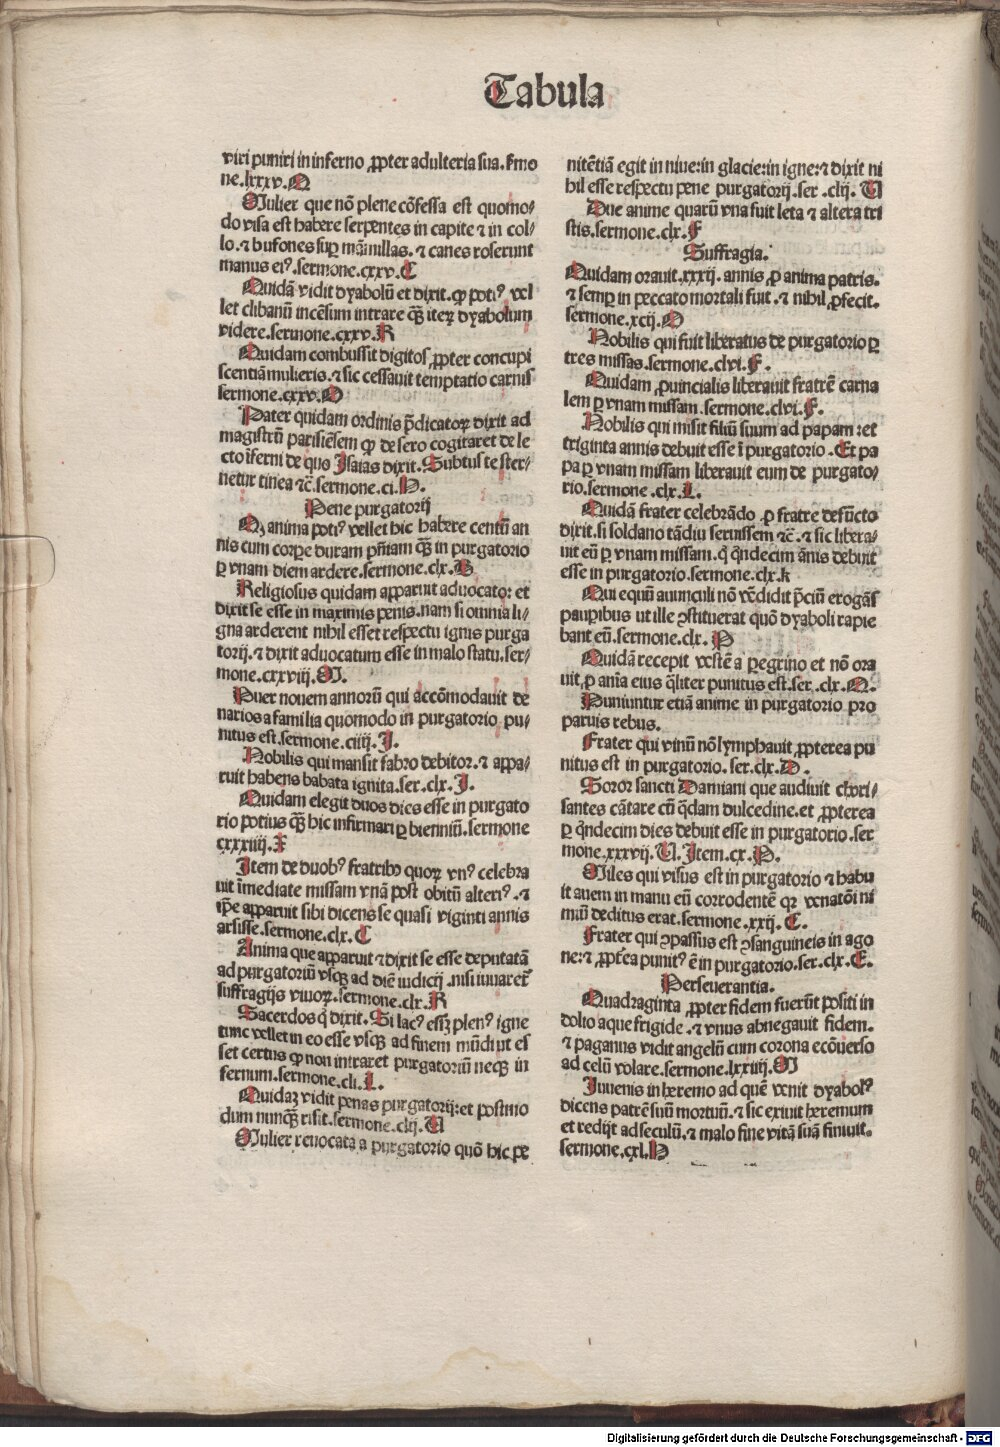 Tabula
viri puniri in inferno ꝓpter adulteria sua.ẜmo
ne.lxxxv.O
Mulier que nō plene cōfessa est quomo⸗
do visa est habere serpentes in capite ⁊ in col⸗
lo.⁊ bufones suꝑ māmillas.⁊ canes roserunt
manus eiꝰ.sermone.cxxv.C
Quidā vidit dyabolū et dixit.ꝙ potiꝰ vel
let clibanū incēsum intrare q̄ꝫ iteꝝ dyabolum
videre.sermone.cxxv.R
Quidam combussit digitos ꝓpter concupi
scentiā mulieris.⁊ sic cessauit temptatio carnis
sermone.cxxv.O
Pater quidam ordinis p̄dicatoꝝ dixit ad
magistrū parisiēsem ꝙ de sero cogitaret de le
cto īferni de quo Isaias dixit.Subtus te ster⸗
netur tinea ⁊c̄.sermone.ci.N.
Pene purgatorij
Qꝫ anima potiꝰ vellet hic habere centū an
nis cum corꝑe duram pn̄iam q̄ꝫ in purgatorio
ꝑ vnam diem ardere.sermone.clx.B
Religiosus quidam apparuit aduocato: et
dixit se esse in maximis penis.nam si omnia li⸗
gna arderent nihil esset respectu ignis purga
torij.⁊ dixit aduocatum esse in malo statu.ser⸗
mone.cxxviij.M.
Puer nouem annorū qui accōmodauit de
narios a familia quomodo in purgatorio pu⸗
nitus est.sermone.ciiij.I.
Nobilis qui mansit fabro debitor.⁊ appa⸗
ruit habens babata ignita.ser.clx.I.
Quidam elegit duos dies esse in purgato
rio potius q̄ꝫ hic infirmari ꝑ bienniū.sermone
cxxxiiij.F
Item de duobꝰ fratribꝰ quoꝝ vnꝰ celebra
uit īmediate missam vnā post obitū alteriꝰ.⁊
ip̄e apparuit sibi dicens se quasi viginti annis
arsisse.sermone.clx.C
Anima que apparuit ⁊ dixit se esse deputatā
ad purgatoriū vsqꝫ ad diē iudicij.nisi iuuaret᷑
suffragijs viuoꝝ.sermone.clx.R
Sacerdos q̇ dixit.Si lacꝰ essꝫ plenꝰ igne
tunc vellet in eo esse vsqꝫ ad finem mūdi ut es
set certus ꝙ non intraret purgatoriū neqꝫ in
fernum.sermone.cli.L.
Quidaꝫ vidit penas purgatorij:et postmo
dum nunq̄ꝫ risit.sermone.clij.U
Mulier reuocata a purgatorio quō hic pe
nitētiā egit in niue:in glacie:in igne:⁊ dixit ni
hil esse respectu pene purgatorij.ser.clij.U
Due anime quarū vna fuit leta ⁊ altera tri
stis.sermone.clx.F
Suffragia.
Quidam orauit.xxxij.annis ꝓ anima patris.
⁊ semꝑ in peccato mortali fuit.⁊ nihil ꝓfecit.
sermone.xcij.O
Nobilis qui fuit liberatus de purgatorio ꝑ
tres missas.sermone.clvi.F.
Quidam ꝓuincialis liberauit fratrē carna
lem ꝑ vnam missam.sermone.clvi.F.
Nobilis qui misit filiū suum ad papam:et
triginta annis debuit esse ī purgatorio.Et pa
pa ꝑ vnam missam liberauit eum de purgato⸗
rio.sermone.clx.L.
Quidā frater celebrādo ꝓ fratre defūcto
dixit.si soldano tādiu seruissem ⁊c̄.⁊ sic libera⸗
uit eū ꝑ vnam missam.q̇ q̇ndecim ānis debuit
esse in purgatorio.sermone.clx.k
Qui equū auunculi nō vēdidit p̄ciū erogās
pauꝑibus ut ille ꝯstituerat quō dyaboli rapie
bant eū.sermone.clx.P
Quidā recepit vestē a ꝑegrino et nō ora
uit ꝓ anīa eius q̄liter punitus est.ser.clx.Q.
Puniuntur etiā anime in purgatorio pro
paruis rebus.
Frater qui vinū nō lymphauit ꝓpterea pu
nitus est in purgatorio.ser.clx.D.
Soror sancti Damiani que audiuit chori⸗
santes cātare cū q̄dam dulcedine.et ꝓpterea
ꝑ q̇ndecim dies debuit esse in purgatorio.ser
mone.xxxvij.U.Item.cx.P.
Miles qui visus est in purgatorio ⁊ habu
it auem in manu eū corrodentē qꝛ venatōi ni
miū deditus erat.sermone.xxij.C.
Frater qui ꝯpassus est ꝯsanguineis in ago
ne:⁊ ꝓpt̄ea punitꝰ ē in purgatorio.ser.clx.E.
Perseuerantia.
Quadraginta ꝓpter fidem fuerūt positi in
dolio aque frigide.⁊ vnus abnegauit fidem.
⁊ paganus vidit angelū cum corona ecōuerso
ad celū volare.sermone.lxxiiij.M
Iuuenis in heremo ad quē venit dyabolꝰ
dicens patrē suū mortuū.⁊ sic exiuit heremum
et redijt ad seculū.⁊ malo fine vitā suā finiuit.
sermone.cxl.N
Digitalisierung gefördert durch die Deutsche Forschungsgemeinschaft - DFG